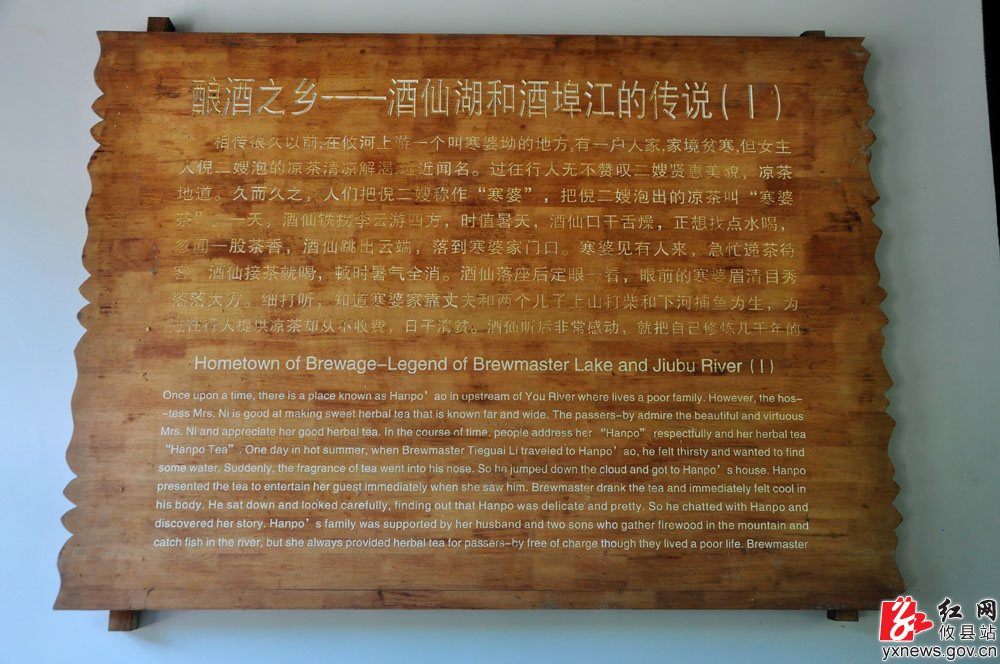 酿酒之乡——酒仙湖和酒埠江的传说(I)
相传很久以前,在攸河上游一个叫寒婆坳的地方,有一户人家,家境贫寒,但女主
人倪二嫂泡的凉茶清凉解渴远近闻名。过往行人无不赞叹二嫂贤惠美貌，凉茶
地道。久而久之，人们把倪二嫂称作“寒婆”，把倪二嫂泡出的凉茶叫“寒婆
茶”。一天，酒仙铁拐李云游四方，时值暑天，酒仙口干舌燥，正想找点水喝，
忽闻一股茶香，酒仙跳出云端，落到寒婆家门口。寒婆见有人来，急忙递茶待
客。酒仙接茶就喝，顿时暑气全消。酒仙落座后定眼一看，眼前的寒婆眉清目秀
落大方。细打听，知道寒婆家靠丈夫和两个儿子上山打柴和下河捕鱼为生，为
过往行人提供凉茶却从不收费，日子清贫。酒仙听后非常感动，就把自己修炼几千年的
Hometown of Brewage-Legend of Brewmaster Lake and Jiubu River (I)
Once upon a time, there is a place known as Hanpo’ao in upstream of You River where lives a poor family. However, the hos-
-tess Mrs. Ni is good at making sweet herbal tea that is known far and wide. The passers-by admire the beautiful and virtuous
Mrs. Ni and appreciate her good herbal tea. In the course of time, people address her “Hanpo” respectfully and her herbal tea
“Hanpo Tea”. One day in hot summer, when Brewmaster Tieguai Li traveled to Hanpo’ao, he felt thirsty and wanted to find
some water. Suddenly, the fragrance of tea went into his nose. So he jumped down the cloud and got to Hanpo’s house. Hanpo
presented the tea to entertain her guest immediately when she saw him. Brewmaster drank the tea and immediately felt cool in
his body. He sat down and looked carefully, finding out that Hanpo was delicate and pretty. So he chatted with Hanpo and
discovered her story. Hanpo’s family was supported by her husband and two sons who gather firewood in the mountain and
catch fish in the river, but she always provided herbal tea for passers-by free of charge though they lived a poor life. Brewmaster
红网
攸县站
yxnews.gov.cn